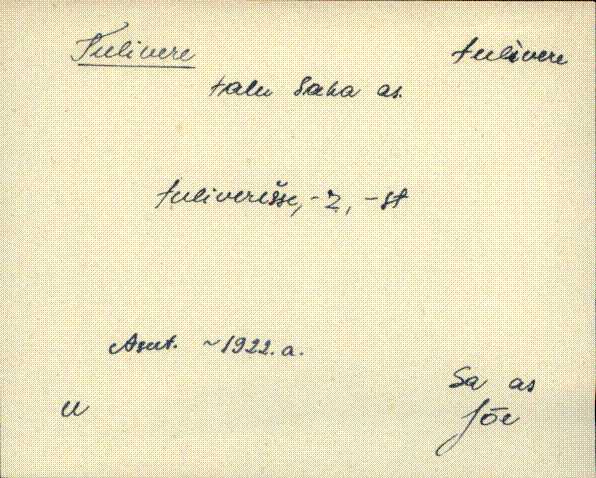 Tulivere tulivere
talu Saha as.
tuliverešse, -z, -st
Asut. ~1922. a.
Sa as
u Jõe